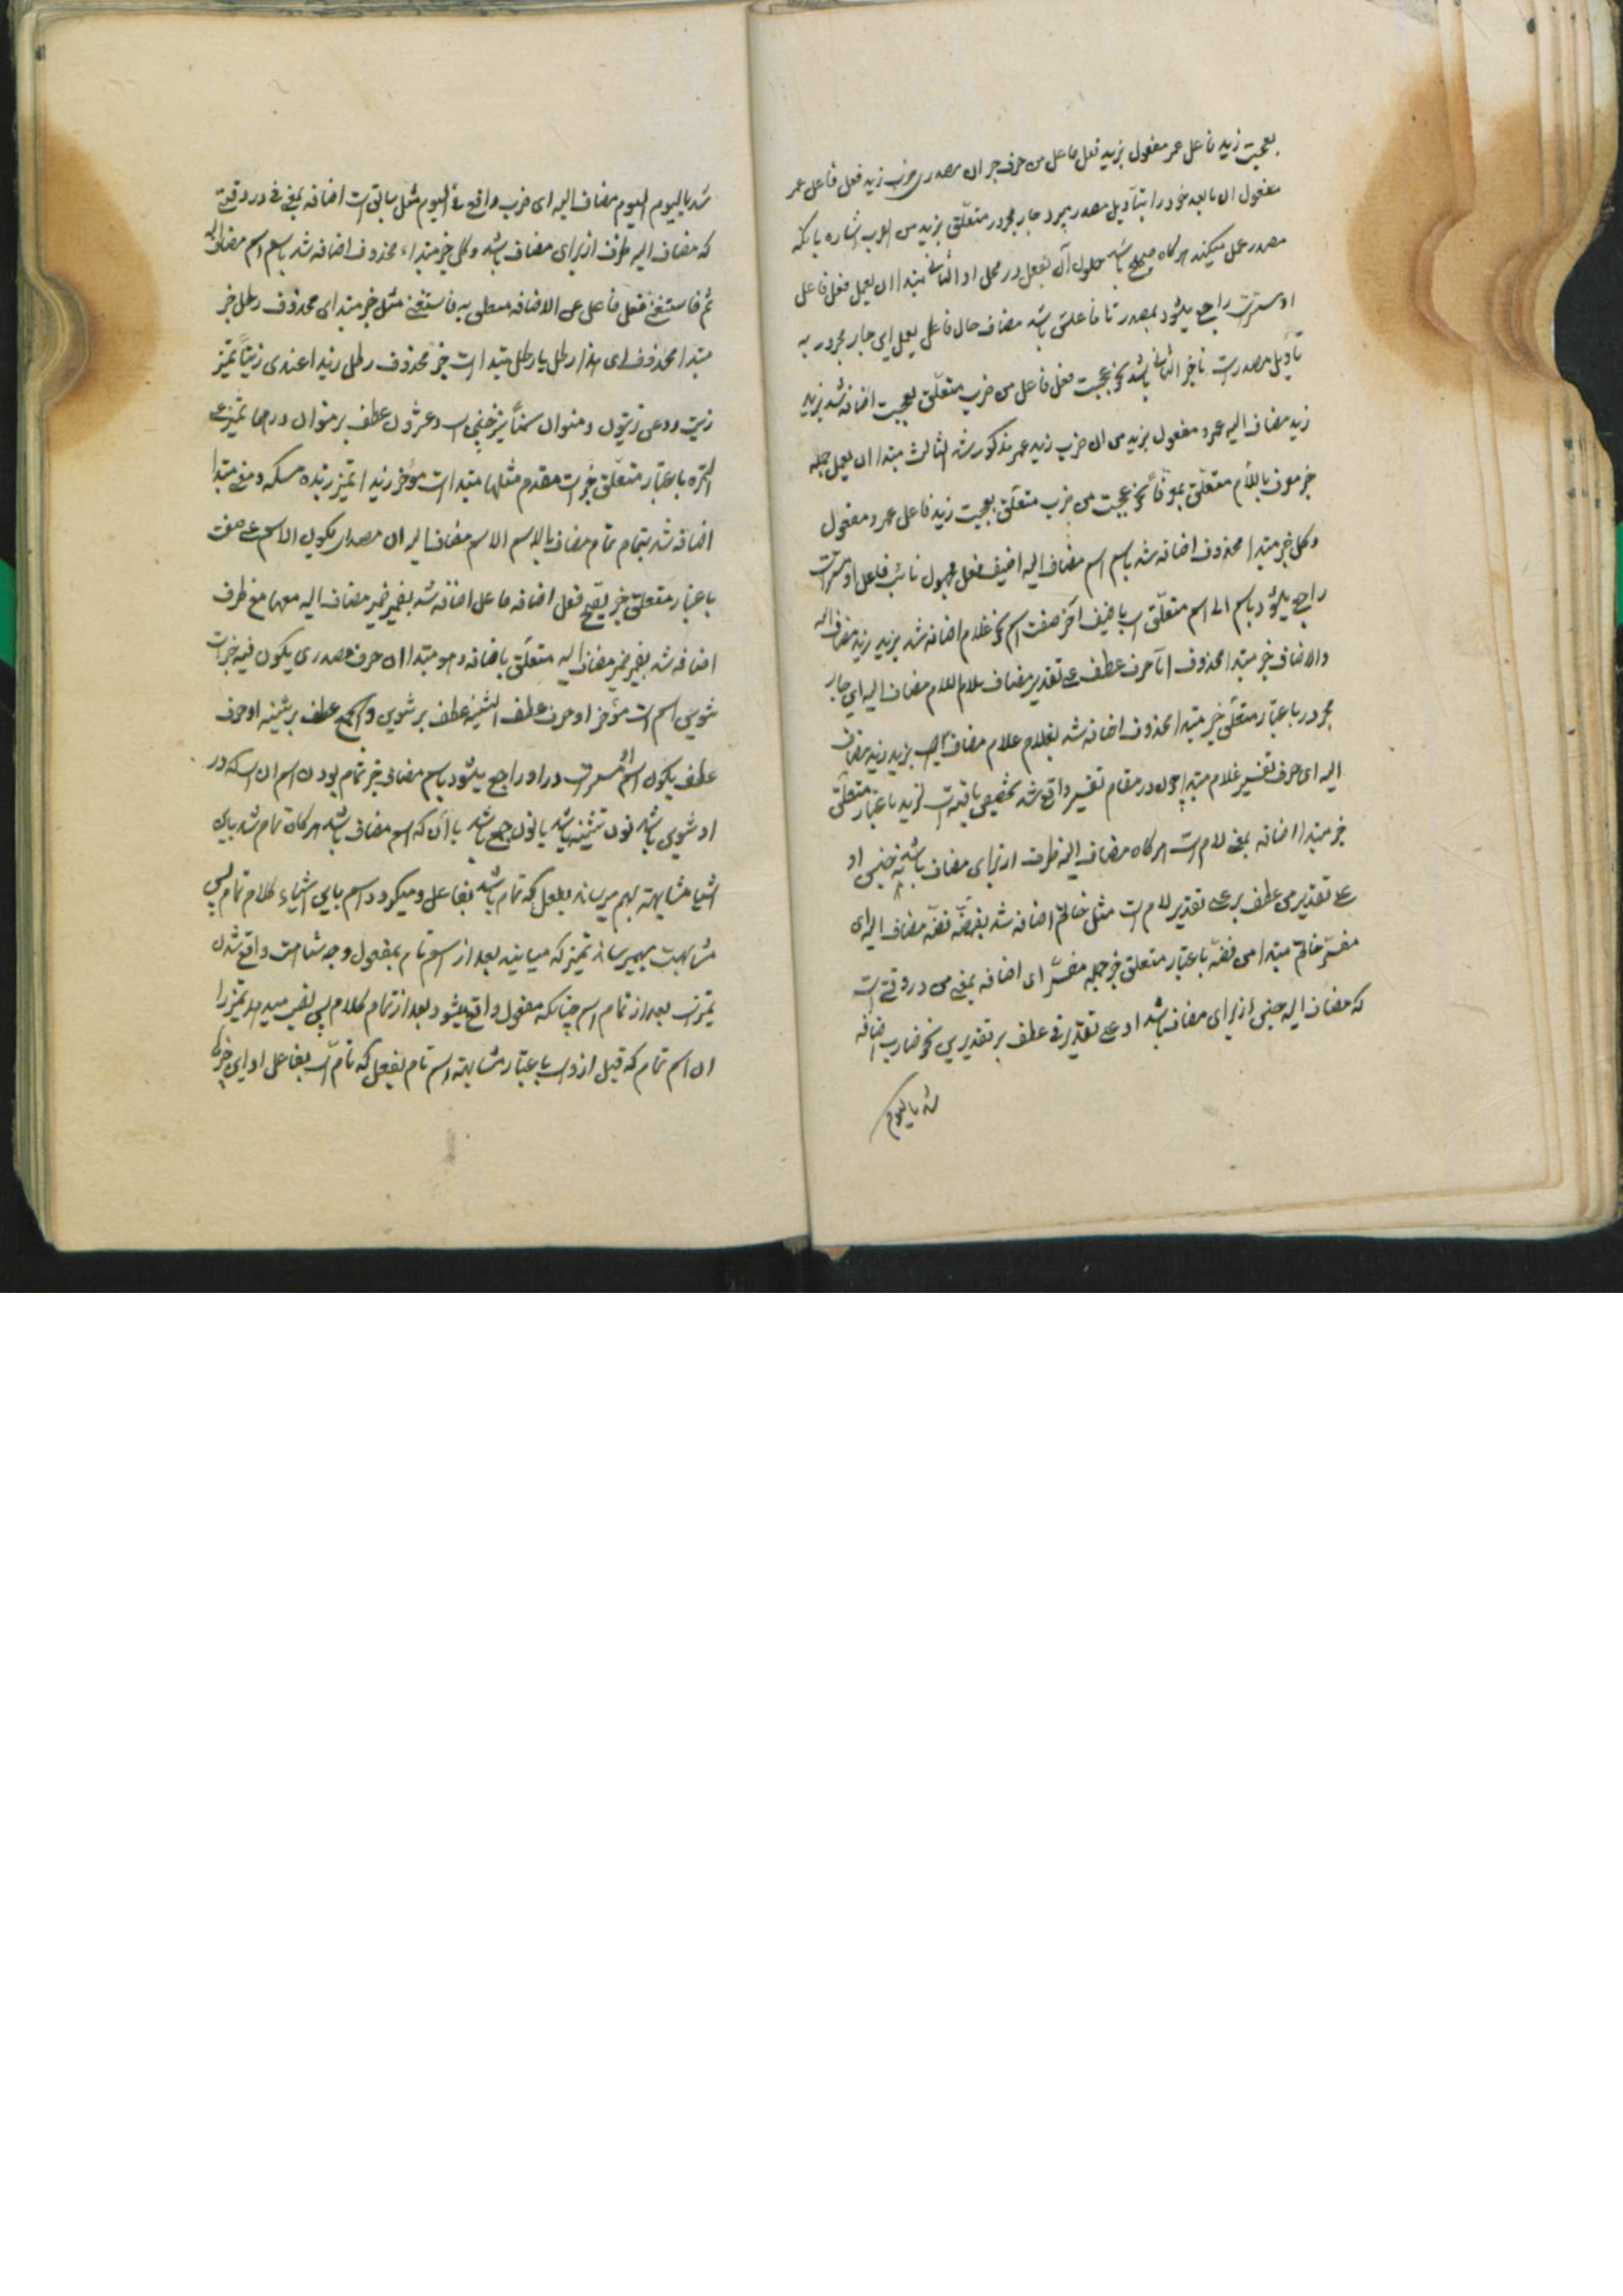 بعجبت زید فاعل عمر مفعول بزید فعل فاعل من حرف جر ان مصدری ضرب زید فعل فاعل عمر
مفعول ان مابعد خود را بتاویل مصدر میبرد جار مجرور متعلق بزید من العرب اشاره بانکه
مصدر عمل میکند هرگاه صحیح باشد حلول آن بفعل در محل او الثانی مبتدا ان یعمل فعل فاعل
او مستتر است راجع میشود بمصدر تا فاعلش باشد مضاف حال فاعل یعمل ای جار مجرور به
تاویل مصدر است تا خبر الثانی باشد نحو عجبت فعل فاعل من ضرب متعلق بعجبت اضافه شد بزید
زید مضاف الیه عمرو مفعول بزید من ان ضرب زید عمر مذکور شد الثالث مبتدا ان یعمل جمله
خبر معرف باللام متعلق بموقا نحو عجبت من ضرب متعلق بعجبت زید فاعل عمرو مفعول
وکل خبر مبتدا محذوف اضافه شد باسم اسم مضاف الیه اضیف فعل مجهول نائب فاعل او مستتر است
راجع میشود باسم الی اسم متعلق است باضیف آخر صفت اسم نحو غلام اضافه شد بزید زید مضاف الیه
والاضاف خبر مبتدا محذوف اما حرف عطف علی تقدیر مضاف بلام اللام مضاف الیه ای جار
مجرور باعتبار متعلق خبر مبتدا محذوف اضافه شد بغلام غلام مضاف بزید زید مضاف
الیه ای حرف تفسیر غلام مبتدا چون در مقام تفسیر واقع شد تخصیص یافته است لزید باعتبار متعلق
خبر مبتدا اضافه بمعنی لام است هرگاه مضاف الیه ظرف از برای مضاف باشد نه جنس او
علی تقدیر من عطف بر علی تقدیر لام است مثل خاتم اضافه شد بفضة فضة مضاف الیه ای
مفسر خاتم مبتدا من فضة باعتبار متعلق خبر جمله مفسر ای اضافه بمعنی من در وقتی است
که مضاف الیه جنس از برای مضاف باشد او علی تقدیر فی عطف بر تقدیر من نحو ضارب اضافه
شد بالیوم
شد بالیوم الیوم مضاف الیه ای ضرب واقع فی الیوم مثل سابق است اضافه بمعنی فی در وقتی
که مضاف الیه ظرف از برای مضاف باشد وکل خبر مبتداء محذوف اضافه شد باسم اسم مضاف الیه
تم فاستغنی فعل فاعل عن الاضافه متعلق به فاستغنی مثل خبر مبتدای محذوف رطل خبر
مبتدا محذوف ای هذا رطل یا رطل مبتدا است خبر محذوف رطل زیدا عندی زیتا تمیز
زیت روغن زیتون ومنوان سمنا تمیز جنس است وعشرون عطف بر منوان درهما تمیز علی
التمره باعتبار متعلق خبر است مقدم مثلها مبتدا است مؤخر زبدا تمیز زبده مسکه ومعنی مبتدا
اضافه شد بتمام تمام مضاف بالاسم الاسم مضاف الیه ان مصدر یکون الاسم علی صفت
باعتبار متعلق خبر یصح فعل اضافه فاعل اضافه شد بضمیر ضمیر مضاف الیه معها مع ظرف
اضافه شد بضمیر ضمیر مضاف الیه متعلق باضافه وهو مبتدا ان حرف مصدری یکون فیه خبر است
تنوین اسم است مؤخر او حرف عطف التثنیه عطف بر تنوین والجمع عطف بر تثنیه او حرف
عطف یکون اسم مستتر است در او راجع میشود باسم مضاف خبر تمام بودن اسم ان است که در
او تنوین باشد نون تثنیه باشد یا نون جمع باشد یا آنکه اسم مضاف باشد هرگاه تمام شد باین
اشیا مشابهت بهم میرساند بفعل که تمام باشد بفاعل ومیگردد اسم باین اشیاء کلام تمام پس
مشابهت بهم میرساند تمیز که میاید بعد از اسم تام بمفعول وجه مشابهت واقع شدن
تمیز است بعد از تمام اسم چنانکه مفعول واقع میشود بعد از تمام کلام پس نصب میدهد تمیز را
ان اسم تمام که قبل از او است باعتبار مشابهت اسم تام بفعل که تام است بفاعل او این خبر که